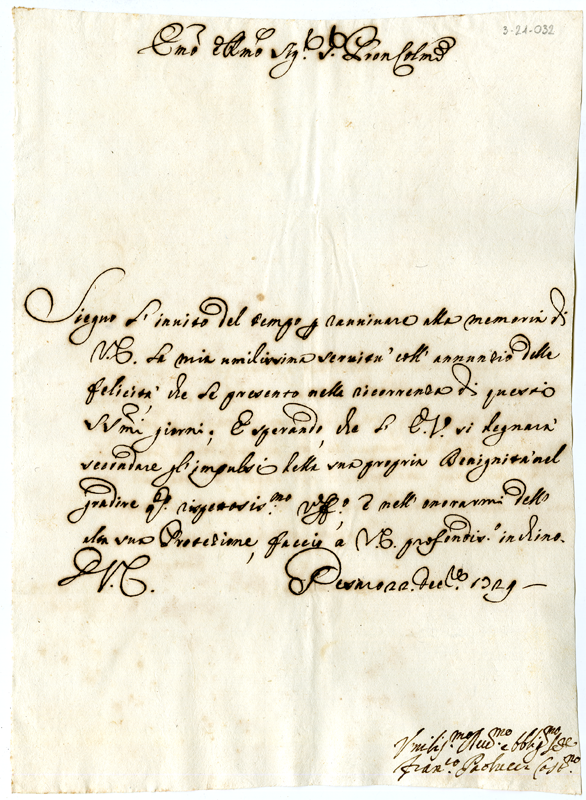 3-21-032
Emo e Rmo Sig.r S.r Pron Colmo
Siegno l'invito del tempo p ravvivare alla memoria di
V.E. la mia umilissima servitù coll'annunzio delle
felicità, che Le presento nella ricorrenza di questi
SSmi giorni; E sperando, che l'E.V. si degnarà
secondare gl'impulsi della sua propria Benignità nel
gradire q.o rispettosis.mo Uff.o, e nell'onorarmi dell'
alta sua Protezione, faccio à V.E. profondis.o inchino.
D.V.E. Pesaro 22. Dec.re 1729
Umilis.mo Deu.mo e Obblig.mo Se.re
Fran.co Paolucci